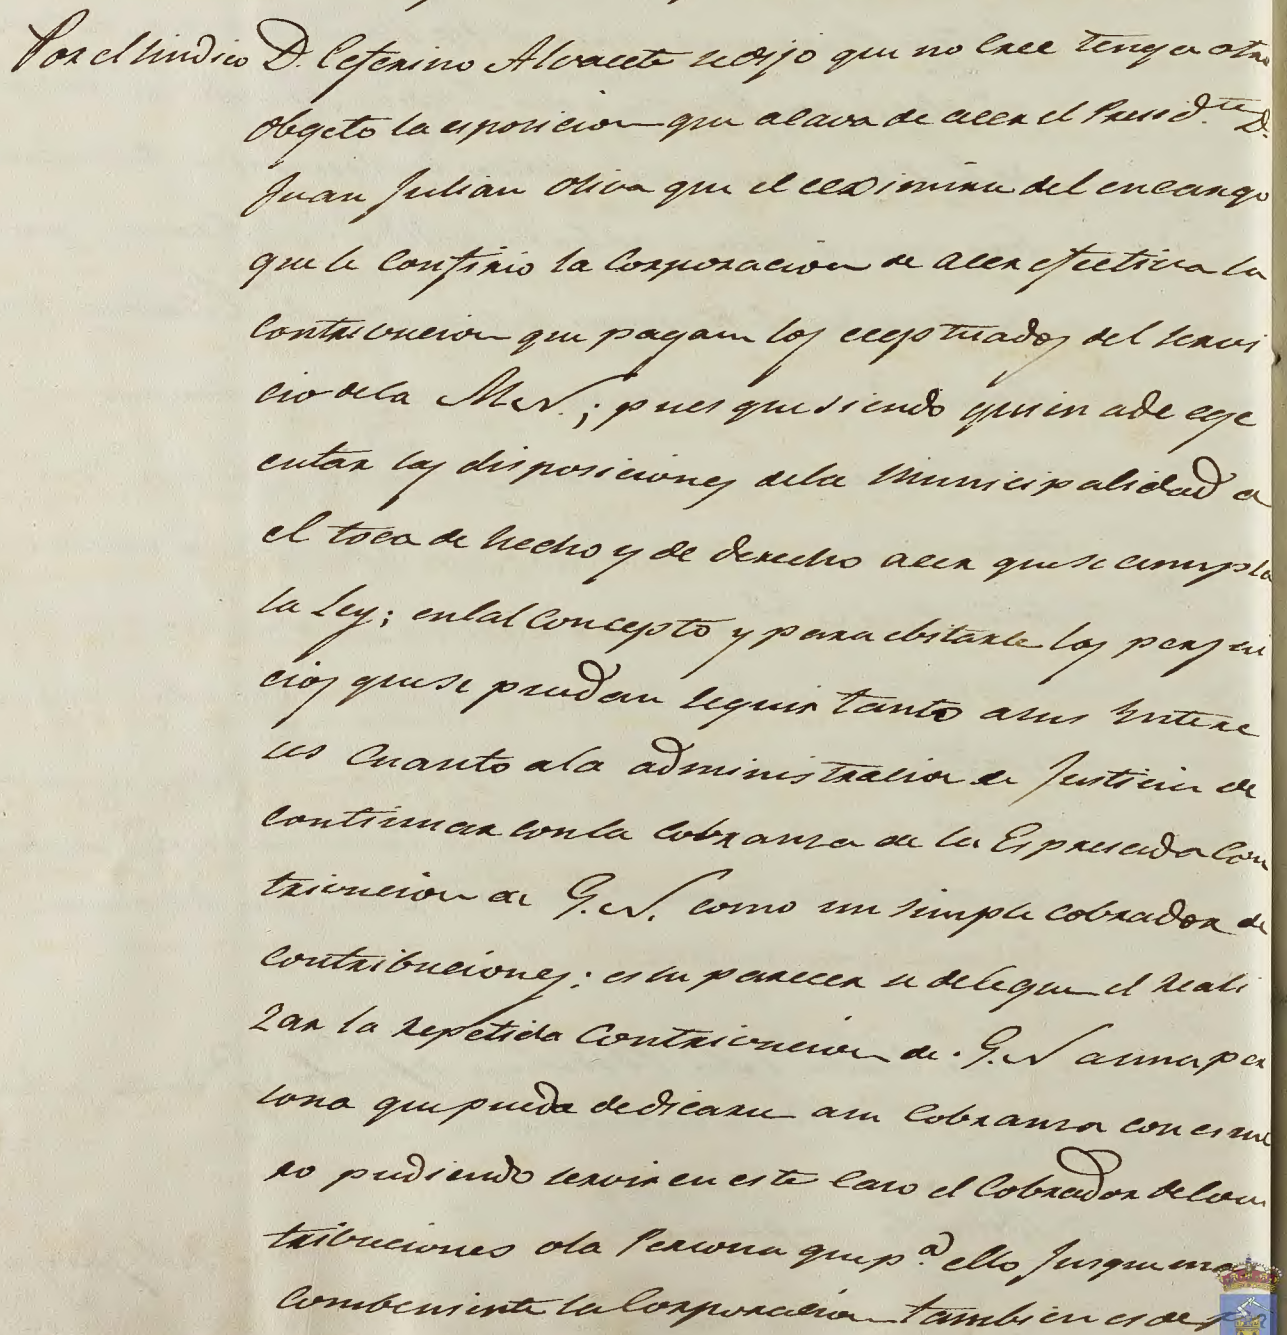 Por el Sindico D. Ceferino Alvacete se dijo que no cree tenga otro
obgeto la esposicion que acava de acer el Presid.te D.
Juan Julian Oliva que el ecximirse del encargo
que le confirio la Corporacion de acer efectiva la
contrivucion que pagan los eceptuados del servi
cio de la M.N.; pues que siendo quien a de eje
cutar las disposiciones de la Municipalidad a
el toca de hecho y de derecho acer que se cumpla
la Ley; en tal concepto y para ebitarle los perjui
cios que se puedan seguir tanto a sus Yntere
ses cuanto a la administracion de Justicia de
continuar con la cobranza de la Espresada Con
trivucion de G.N. como un simple cobrador de
contribuciones; es su parecer se delegue el reali
zar la repetida Contrivucion de G.N a una per
sona que pueda dedicarse a su cobranza con esme
ro pudiendo servir en este caso el Cobrador de Con
tribuciones o la Persona que p.a ello Jusgue mas
combeniente la Corporacion tambien es de